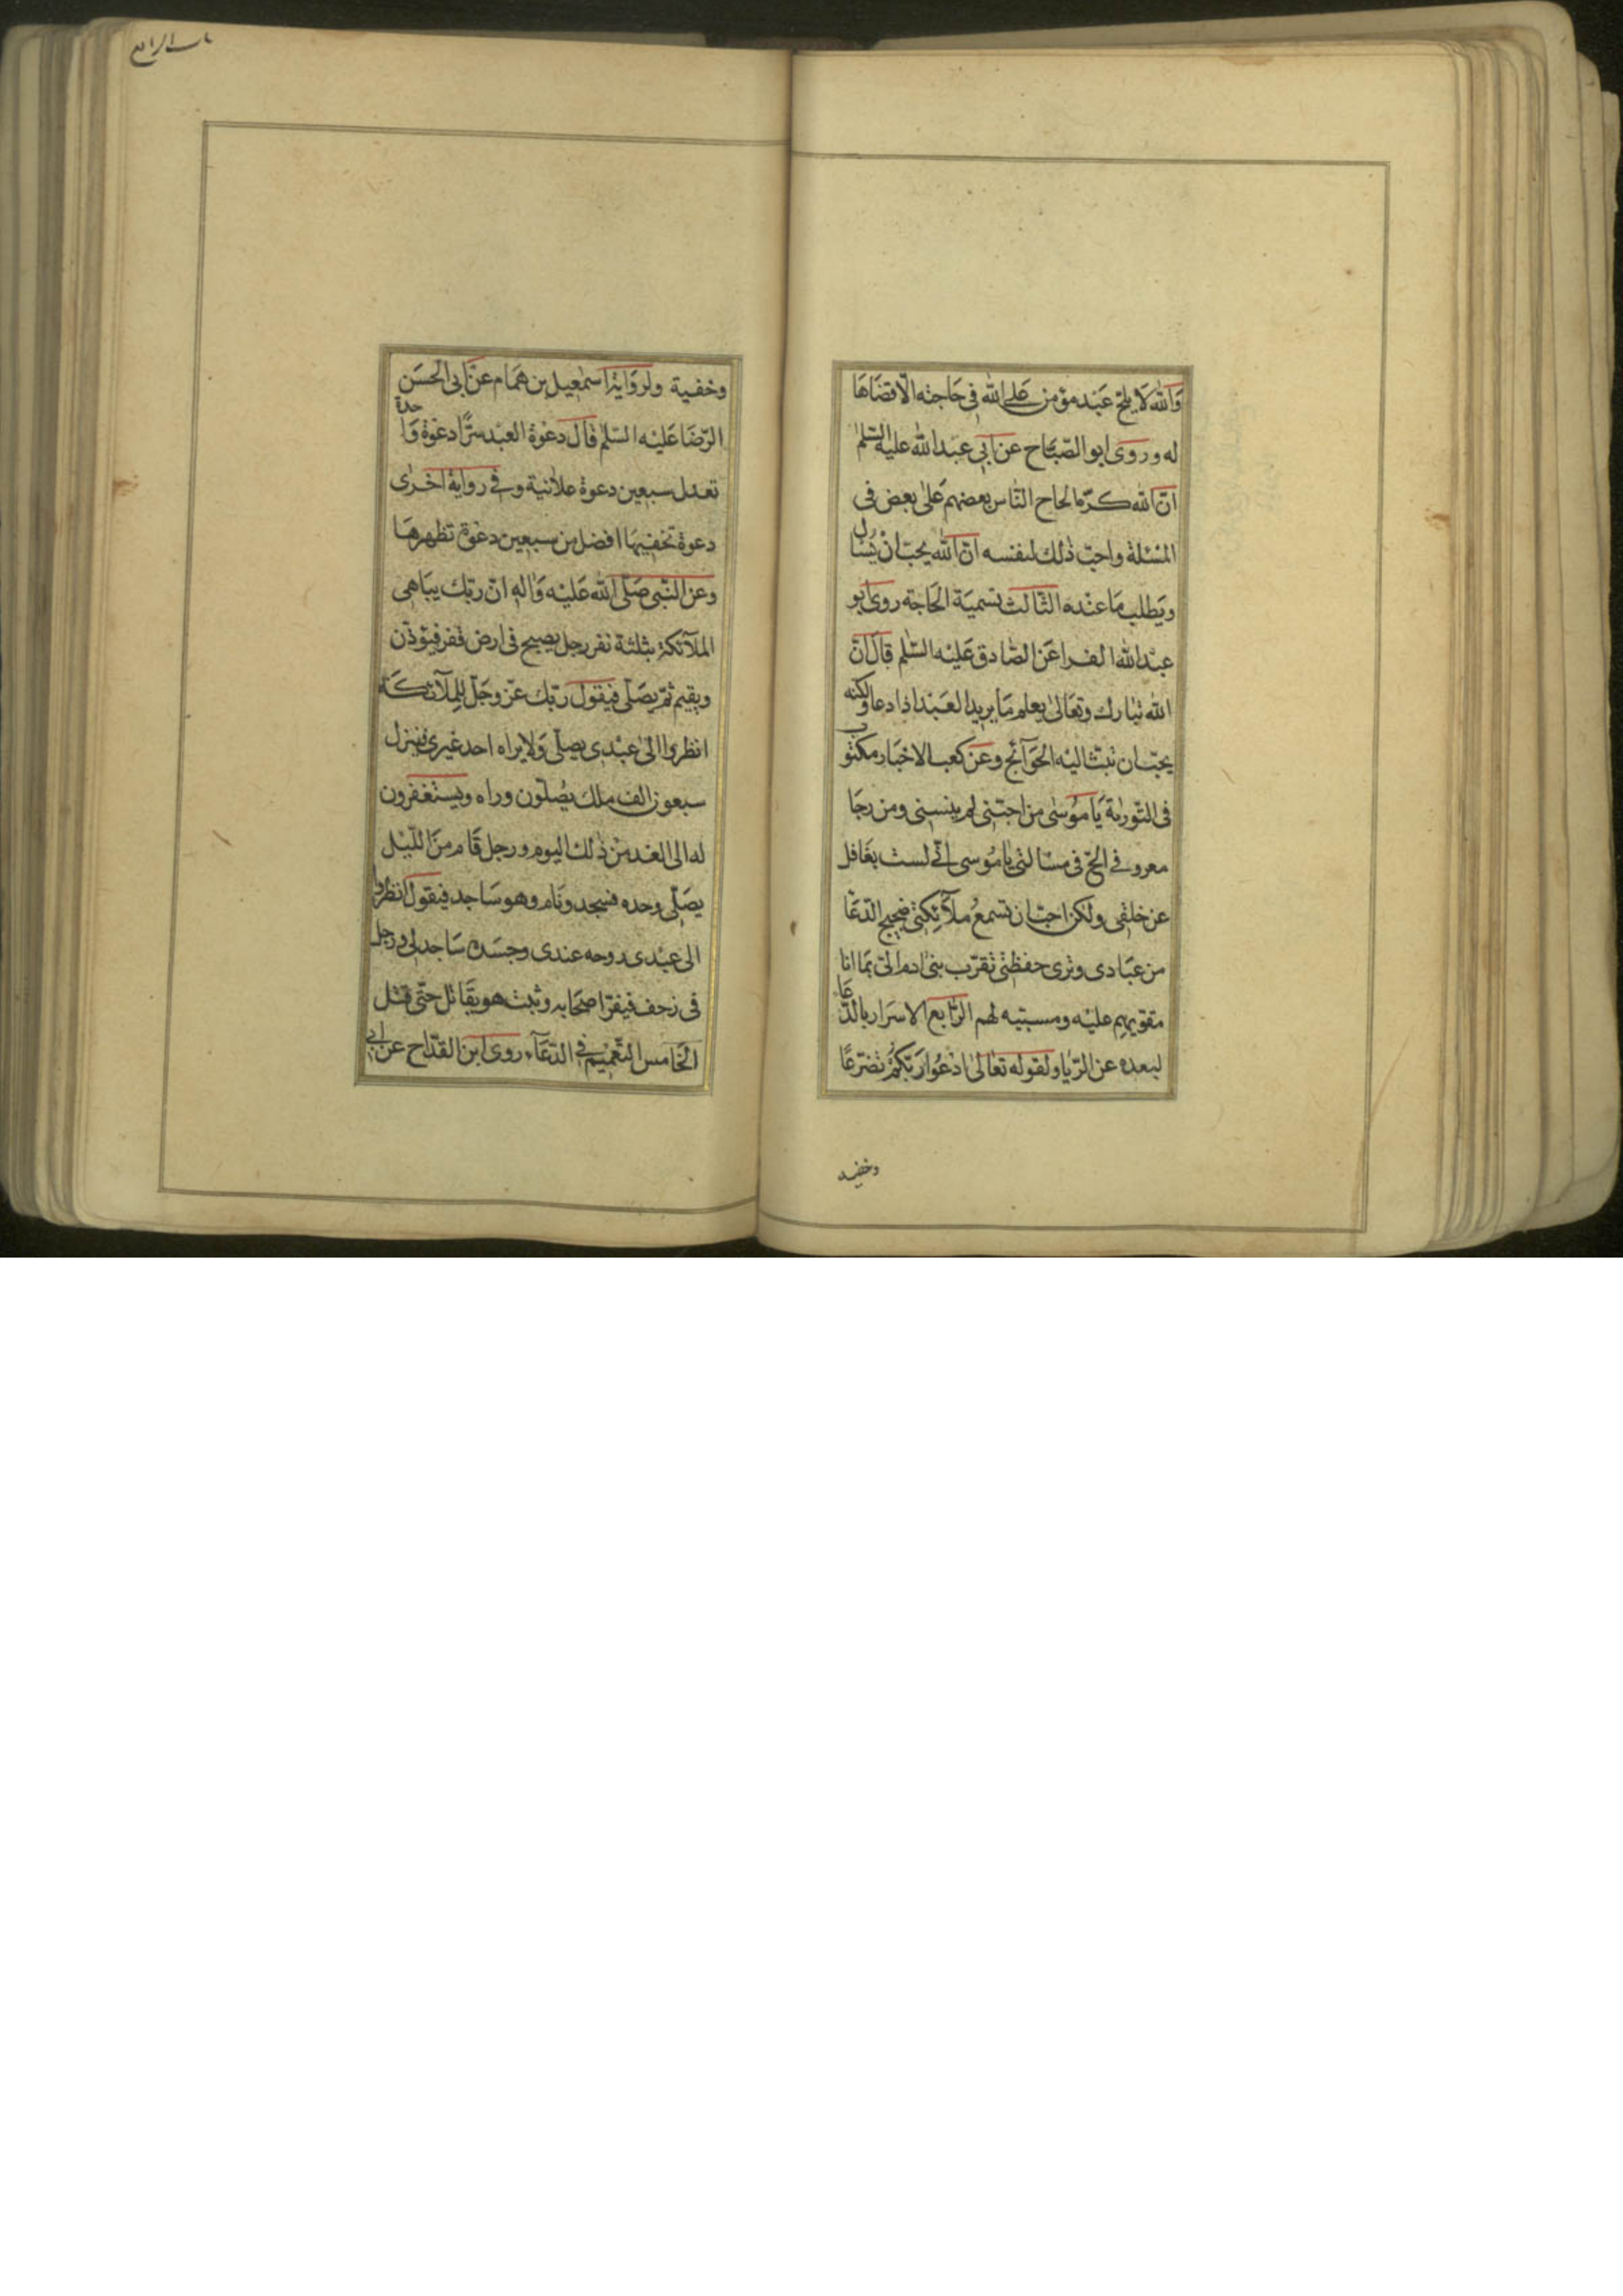 وَاللّٰه لَا يلحّ عَبْد مؤمن عَلى اللّٰه فى حَاجته الّا قضَاهَا
له وروى ابو الصّبّاح عن ابى عبَد اللّٰه عليه السّلم
انّ اللّٰه كرّه الحاح النّاس بعضهم عَلى بعض فى
المسْئلة واحبّ ذٰلك لنفسه انّ اللّٰه يحبّ انْ يُسْاَل
ويَطلب مَا عنْده الثّالث تسميَة الحَاجة روى ابو
عبْد اللّٰه الفرا عَن الصّادق عَليْه السّلم قال انّ
اللّٰه تبارك وتعَالىٰ يعلم مَا يريد العَبْد اذا دعا ولكنه
يحبّ ان تبثّ اليْه الحَوَآئج وعَن كعب الاخبَار مكتوب
فى التّورٰية يَا مُوسٰى من احبّنى لم ينسنى ومن رجَا
معروفى الحّ فى مسْالتى يا مُوسى انّى لست بغَافل
عن خلقى ولٰكن احبّ ان تسْمعُ ملآئكتى ضجيج الدّعَا
من عبَادى وترى حفظتى تقرّب بنى ادم الىّ بمَا انا
مقويهم عليْه ومسبّبه لهم الرّابع الاسرَار بالدّعَا
لبعده عن الرّيا ولقوله تعَالىٰ ادْعُوا رَبّكُمْ تضرّعًا
وخفيه
باب الرابع
وخفية ولروَاية اسمٰعيل بن همَام عَن ابى الحسَن
الرّضَا عَليْه السّلم قال دعْوة العبْد سرًّا دعْوة وَاحدة
تعدل سبعين دعوة علانية وفى رواية اخرٰى
دعوة تخفيهَا افضل من سبعين دعْوة تظهرهَا
وعن النّبى صَلّى اللّٰه عَليْه وَاٰله انّ ربّك يبَاهى
الملآئكة بثلثة نفر رجل يصبح فى ارض قفر فيؤذّن
ويقيم ثمّ يصَلّى فيقول ربّك عزّ وجَلّ للملآئكَة
انظروا الىٰ عبْدى يصلّى وَلا يراه احد غيرى فينزل
سبعون الف ملك يُصَلّون وراه ويستغفرون
له الى الغد منْ ذٰلك اليوم ورجل قَام منَ اللّيْل
يصَلّى وحده فسجد ونام وهو سَاجد فيقول انظروا
الى عبْدى روحه عندى وجسَده سَاجد لى ورجل
فى زحف فيفرّ اصحَابه وثبت هو يقَاتل حتّى قتل
الخَامس التّعْميْم فى الدّعَآء روى ابن القدّاح عن ابى